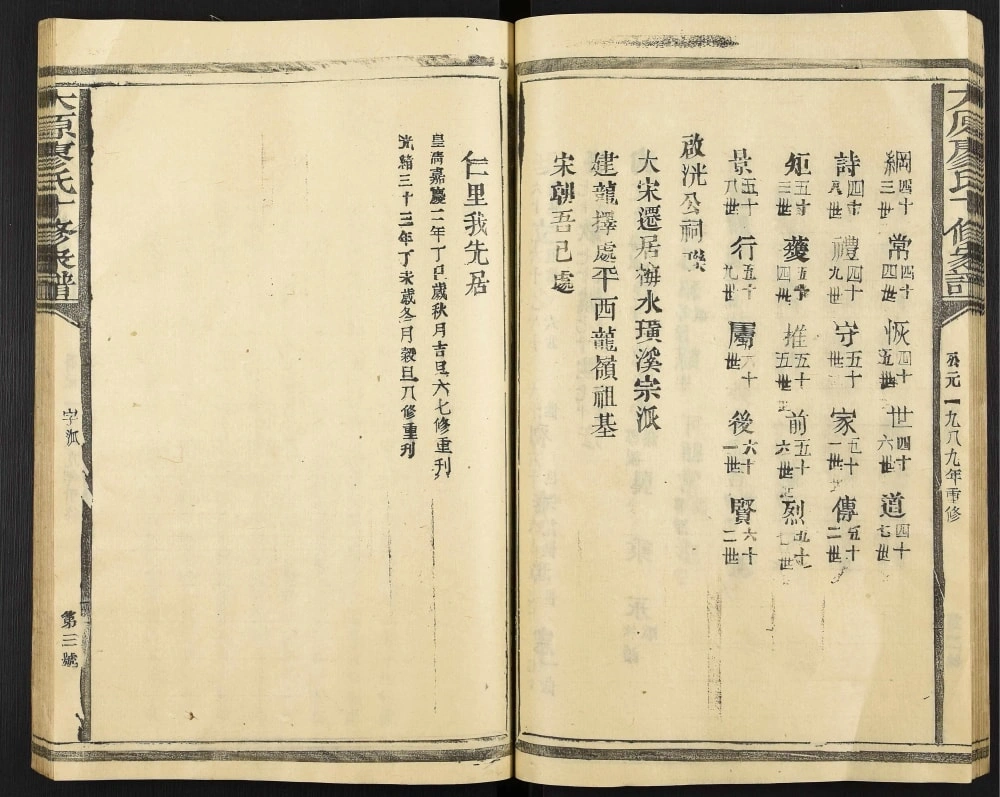 太原廖氏十修家譜
公元一九八九年重修
綱四十三世 常四十四世 恢四十五世 世四十六世 道四十七世
詩四十八世 禮四十九世 守五十世 家五十一世 傳五十二世
矩五十三世 矱五十四世 推五十五世 前五十六世 烈五十七世
景五十八世 行五十九世 屬六十世 後六十一世 賢六十二世
啟洸公祠聯
大宋遷居梅水璜溪宗派
建龍擇處平西龍嶺祖基
宋朝吾已處
仁里我先居
皇清嘉慶二年丁巳歲秋月吉旦六七修重刊
光緒三十三年丁未歲冬月穀旦八修重刊
太原廖氏十修家譜
字派
第三號